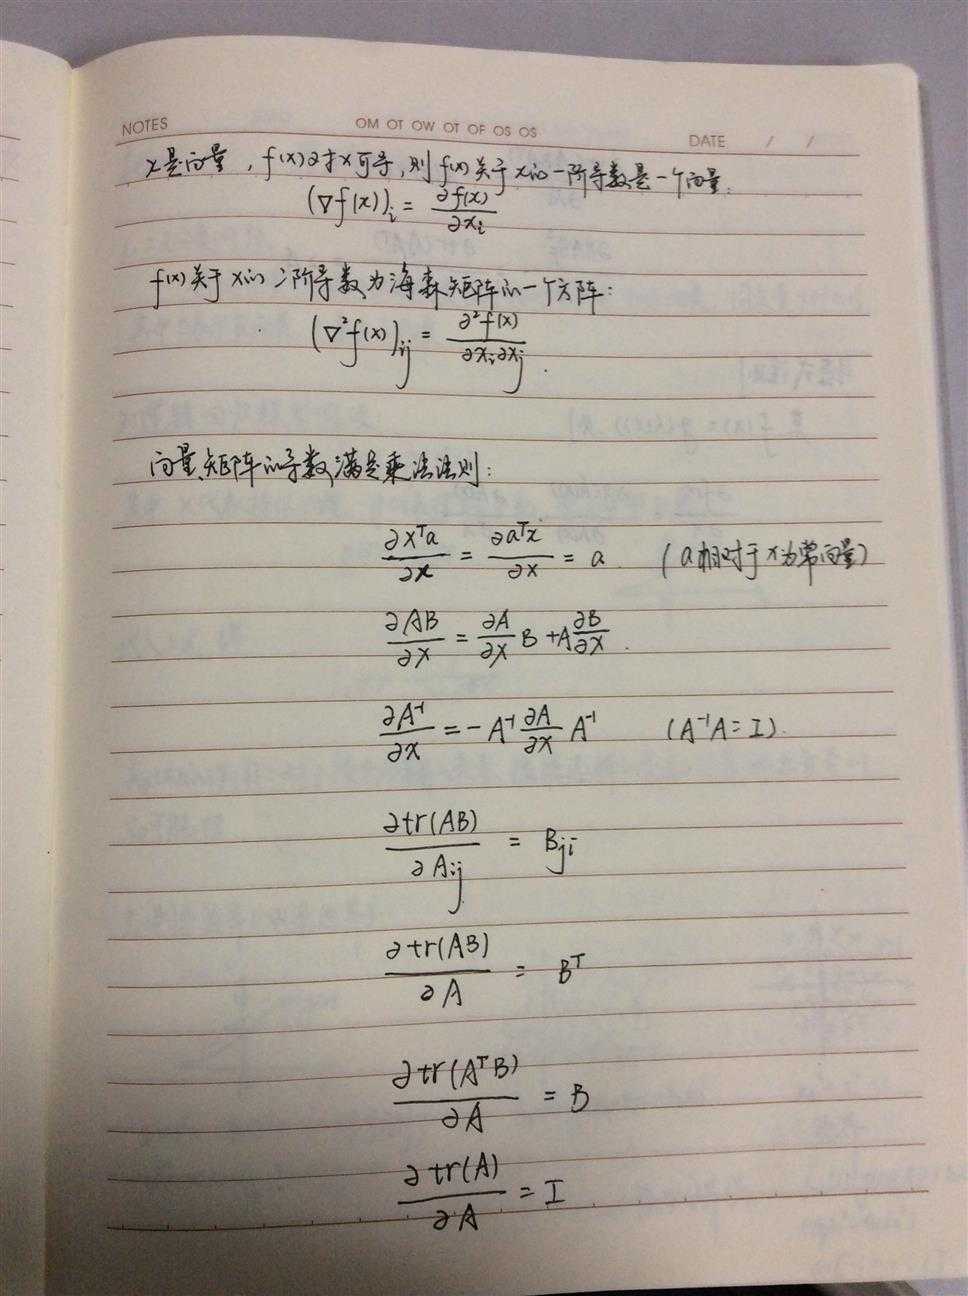 NOTES OM OT OW OT OF OS OS DATE / /
x是向量，f(x)对x可导，则f(x)关于x的一阶导数是一个向量：
(∇f(x))_i = ∂f(x)/∂x_i
f(x)关于x的二阶导数为海森矩阵的一个方阵：
(∇²f(x))_ij = ∂²f(x)/∂x_i∂x_j .
向量,矩阵的导数满足乘法法则：
∂xᵀa/∂x = ∂aᵀx/∂x = a (a相对于x为常向量)
∂AB/∂x = ∂A/∂x B + A ∂B/∂x .
∂A⁻¹/∂x = -A⁻¹ ∂A/∂x A⁻¹ (A⁻¹A = I).
∂tr(AB)/∂A_ij = B_ji
∂tr(AB)/∂A = Bᵀ
∂tr(AᵀB)/∂A = B
∂tr(A)/∂A = I